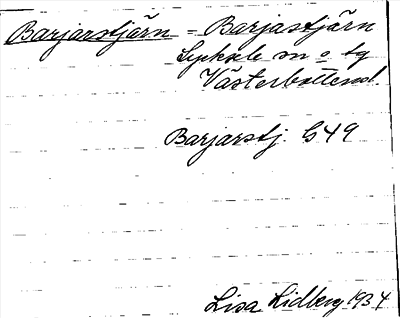 Barjarstjärn = Barjastjärn
Lycksele sn o tg
Västerbottens l.
Barjarstj. G49
Lisa Lidberg 1934